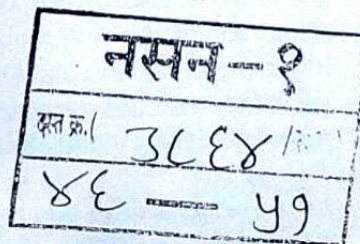 नसन-१
दस्त क्र.( ३८६४ /
४६ — ५१